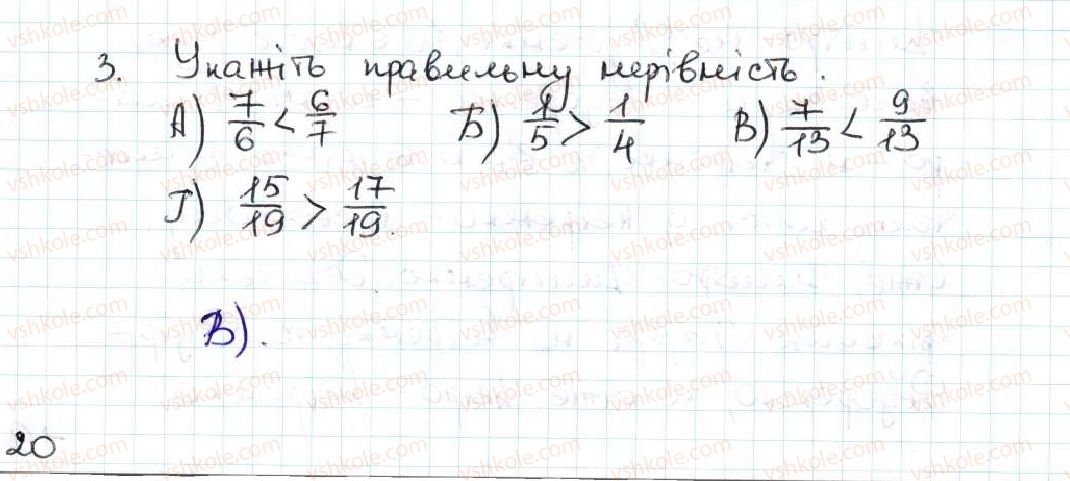 3. Укажіть правильну нерівність.
А) 7/6 < 6/7 Б) 1/5 > 1/4 В) 7/13 < 9/13
Г) 15/19 > 17/19.
В).
20